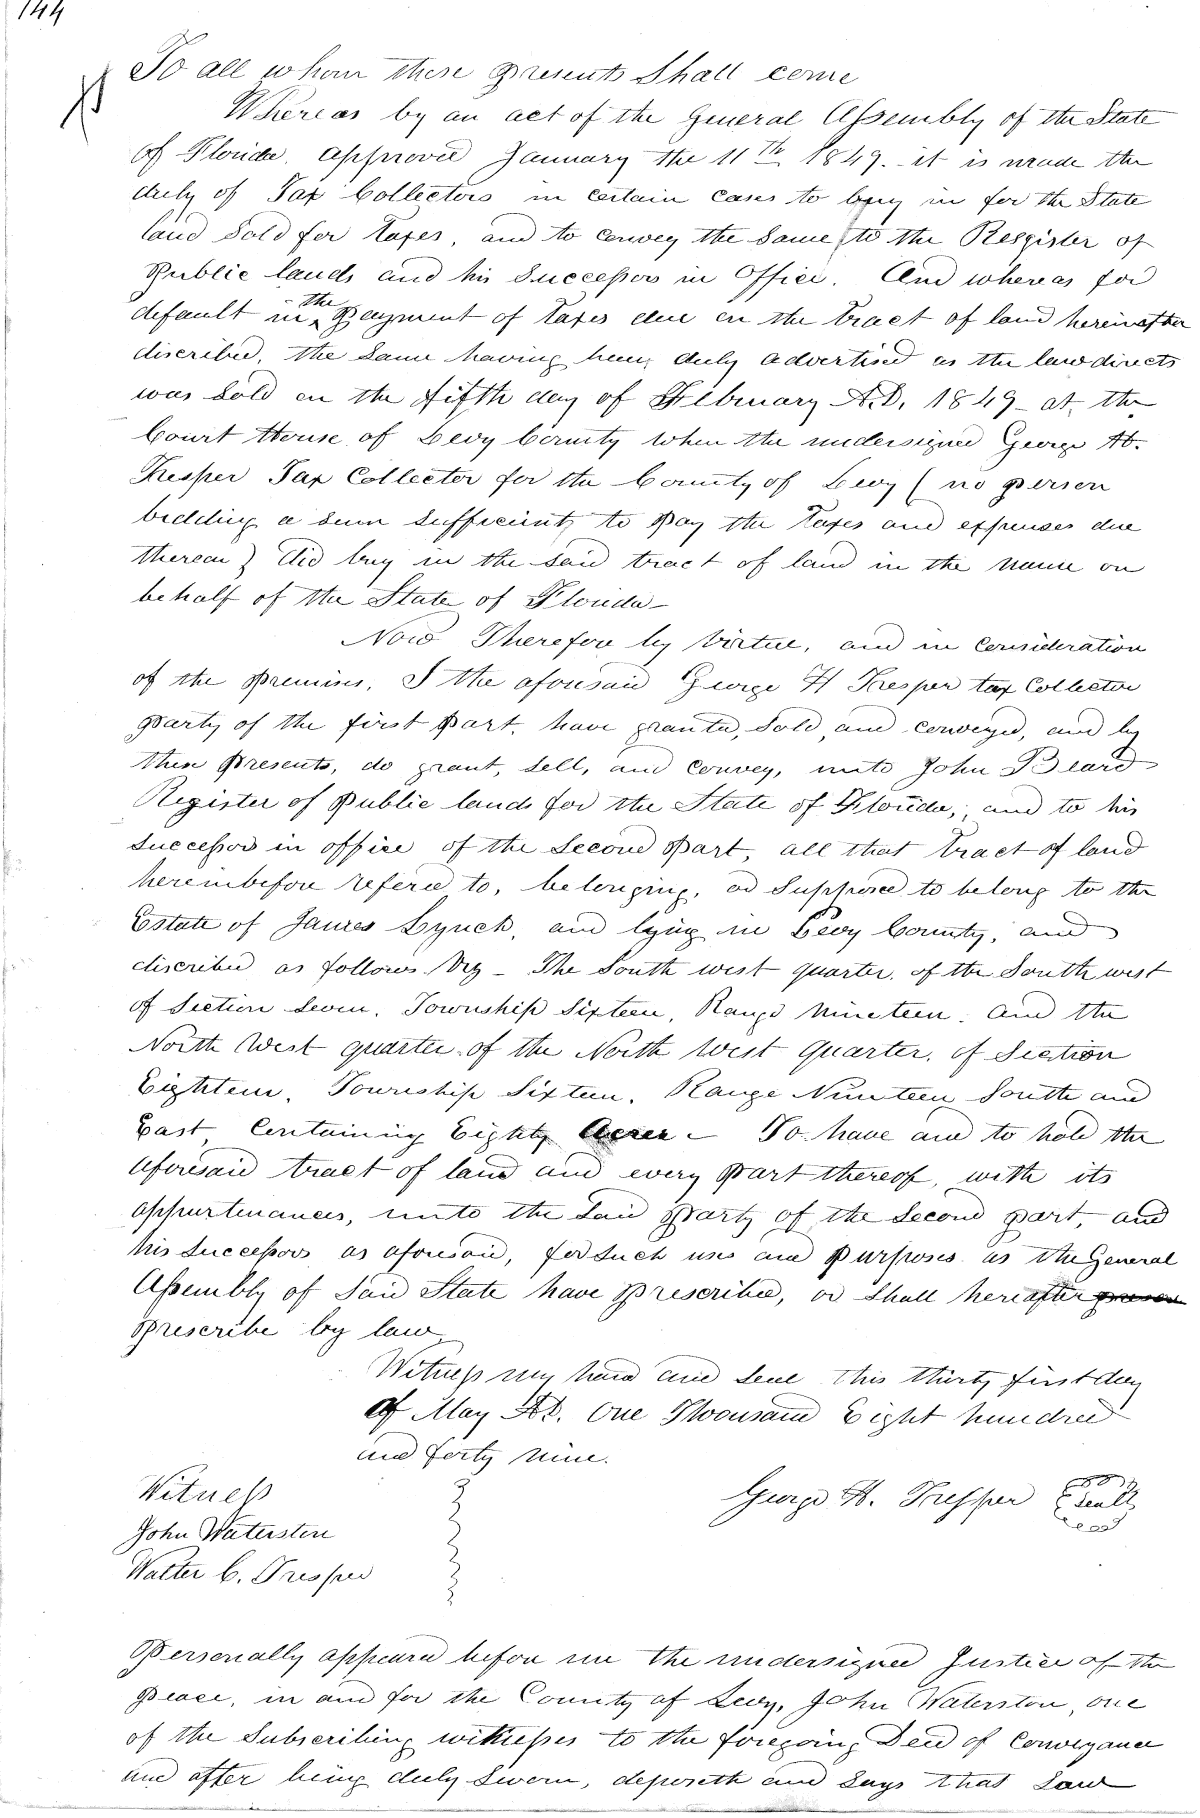 144
To all whom these presents Shall come
Whereas by an act of the General Assembly of the State
of Florida, approved January the 11th 1849. it is made the
duty of Tax Collectors in certain cases to buy in for the State
land Sold for taxes, and to convey the Same to the Resgister of
Public lands and his Successors in Office. And whereas for
default in the payment of taxes due on the tract of land hereinafter
discribed, the Same having been duly advertised as the law directs
was Sold on the fifth day of February A.D. 1849 - at the
Court House of Levy County when the undersigned George H.
Tresper Tax Collector for the County of Levy ( no person
bidding a Sum Sufficient to pay the taxes and expenses due
thereon ) did buy in the Said tract of land in the name on
behalf of the State of Florida -
Now Therefore by Virtue, and in Consideration
of the premises, I the aforesaid George H Tresper tax Collector
party of the first part, have granted, Sold, and conveyed, and by
these presents, do grant, Sell, and convey, unto John Beard
Register of Public lands for the State of Florida, and to his
Successors in office of the Second part, all that tract of land
hereinbefore refered to, belonging, or Supposed to belong to the
Estate of James Lynch, and lying in Levy County, and
discribed as follows Viz - The South west quarter of the South west
of Section Seven, Township Sixteen, Range Nineteen. and the
North West quarter of the North West Quarter, of Section
Eighteen, Township Sixteen, Range Nineteen South and
East, Containing Eighty Acres - To have and to hold the
aforesaid tract of land and every part thereof, with its
appurtenances, unto the Said party of the Second part, and
his Successors as aforesaid, for Such uses and purposes as the General
Assembly of Said State have prescribed, or Shall hereafter
prescribe by law
Witness my hand and Seal this thirty first day
of May AD. One Thousand Eight hundred
and forty nine.
George H. Tresper Seal
Witness
John Waterston
Walter C. Tresper
Personally appeared before me the undersigned Justice of the
Peace, in and for the County of Levy, John Waterston, one
of the Subscribing witnesses to the foregoing Deed of Conveyance
and after being duly Sworn, deposeth and Says that Saw